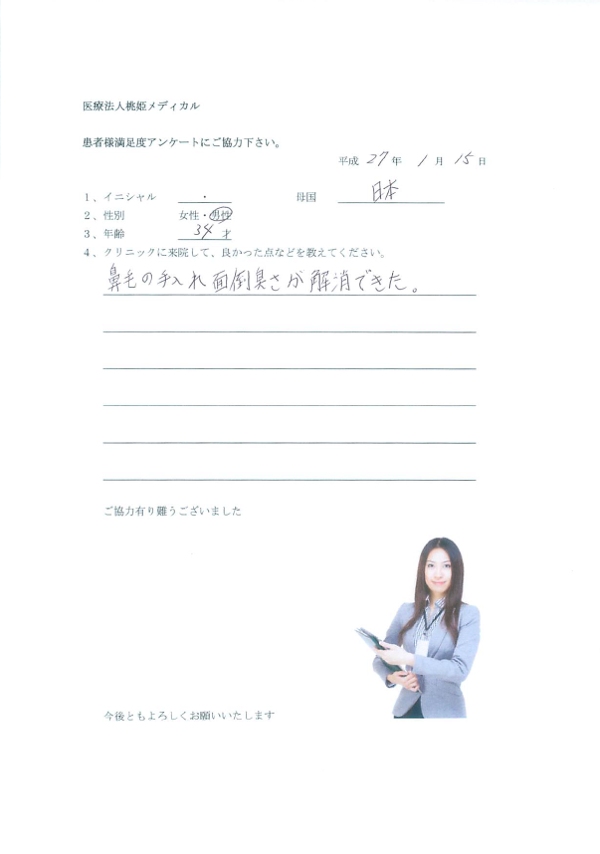 医療法人桃姫メディカル
患者様満足度アンケートにご協力下さい。
平成 27 年 1 月 15 日
1、イニシャル ・ 母国 日本
2、性別 女性・男性
3、年齢 34 才
4、クリニックに来院して、良かった点などを教えてください。
鼻毛の手入れ面倒臭さが解消できた。
ご協力有り難うございました
今後ともよろしくお願いいたします